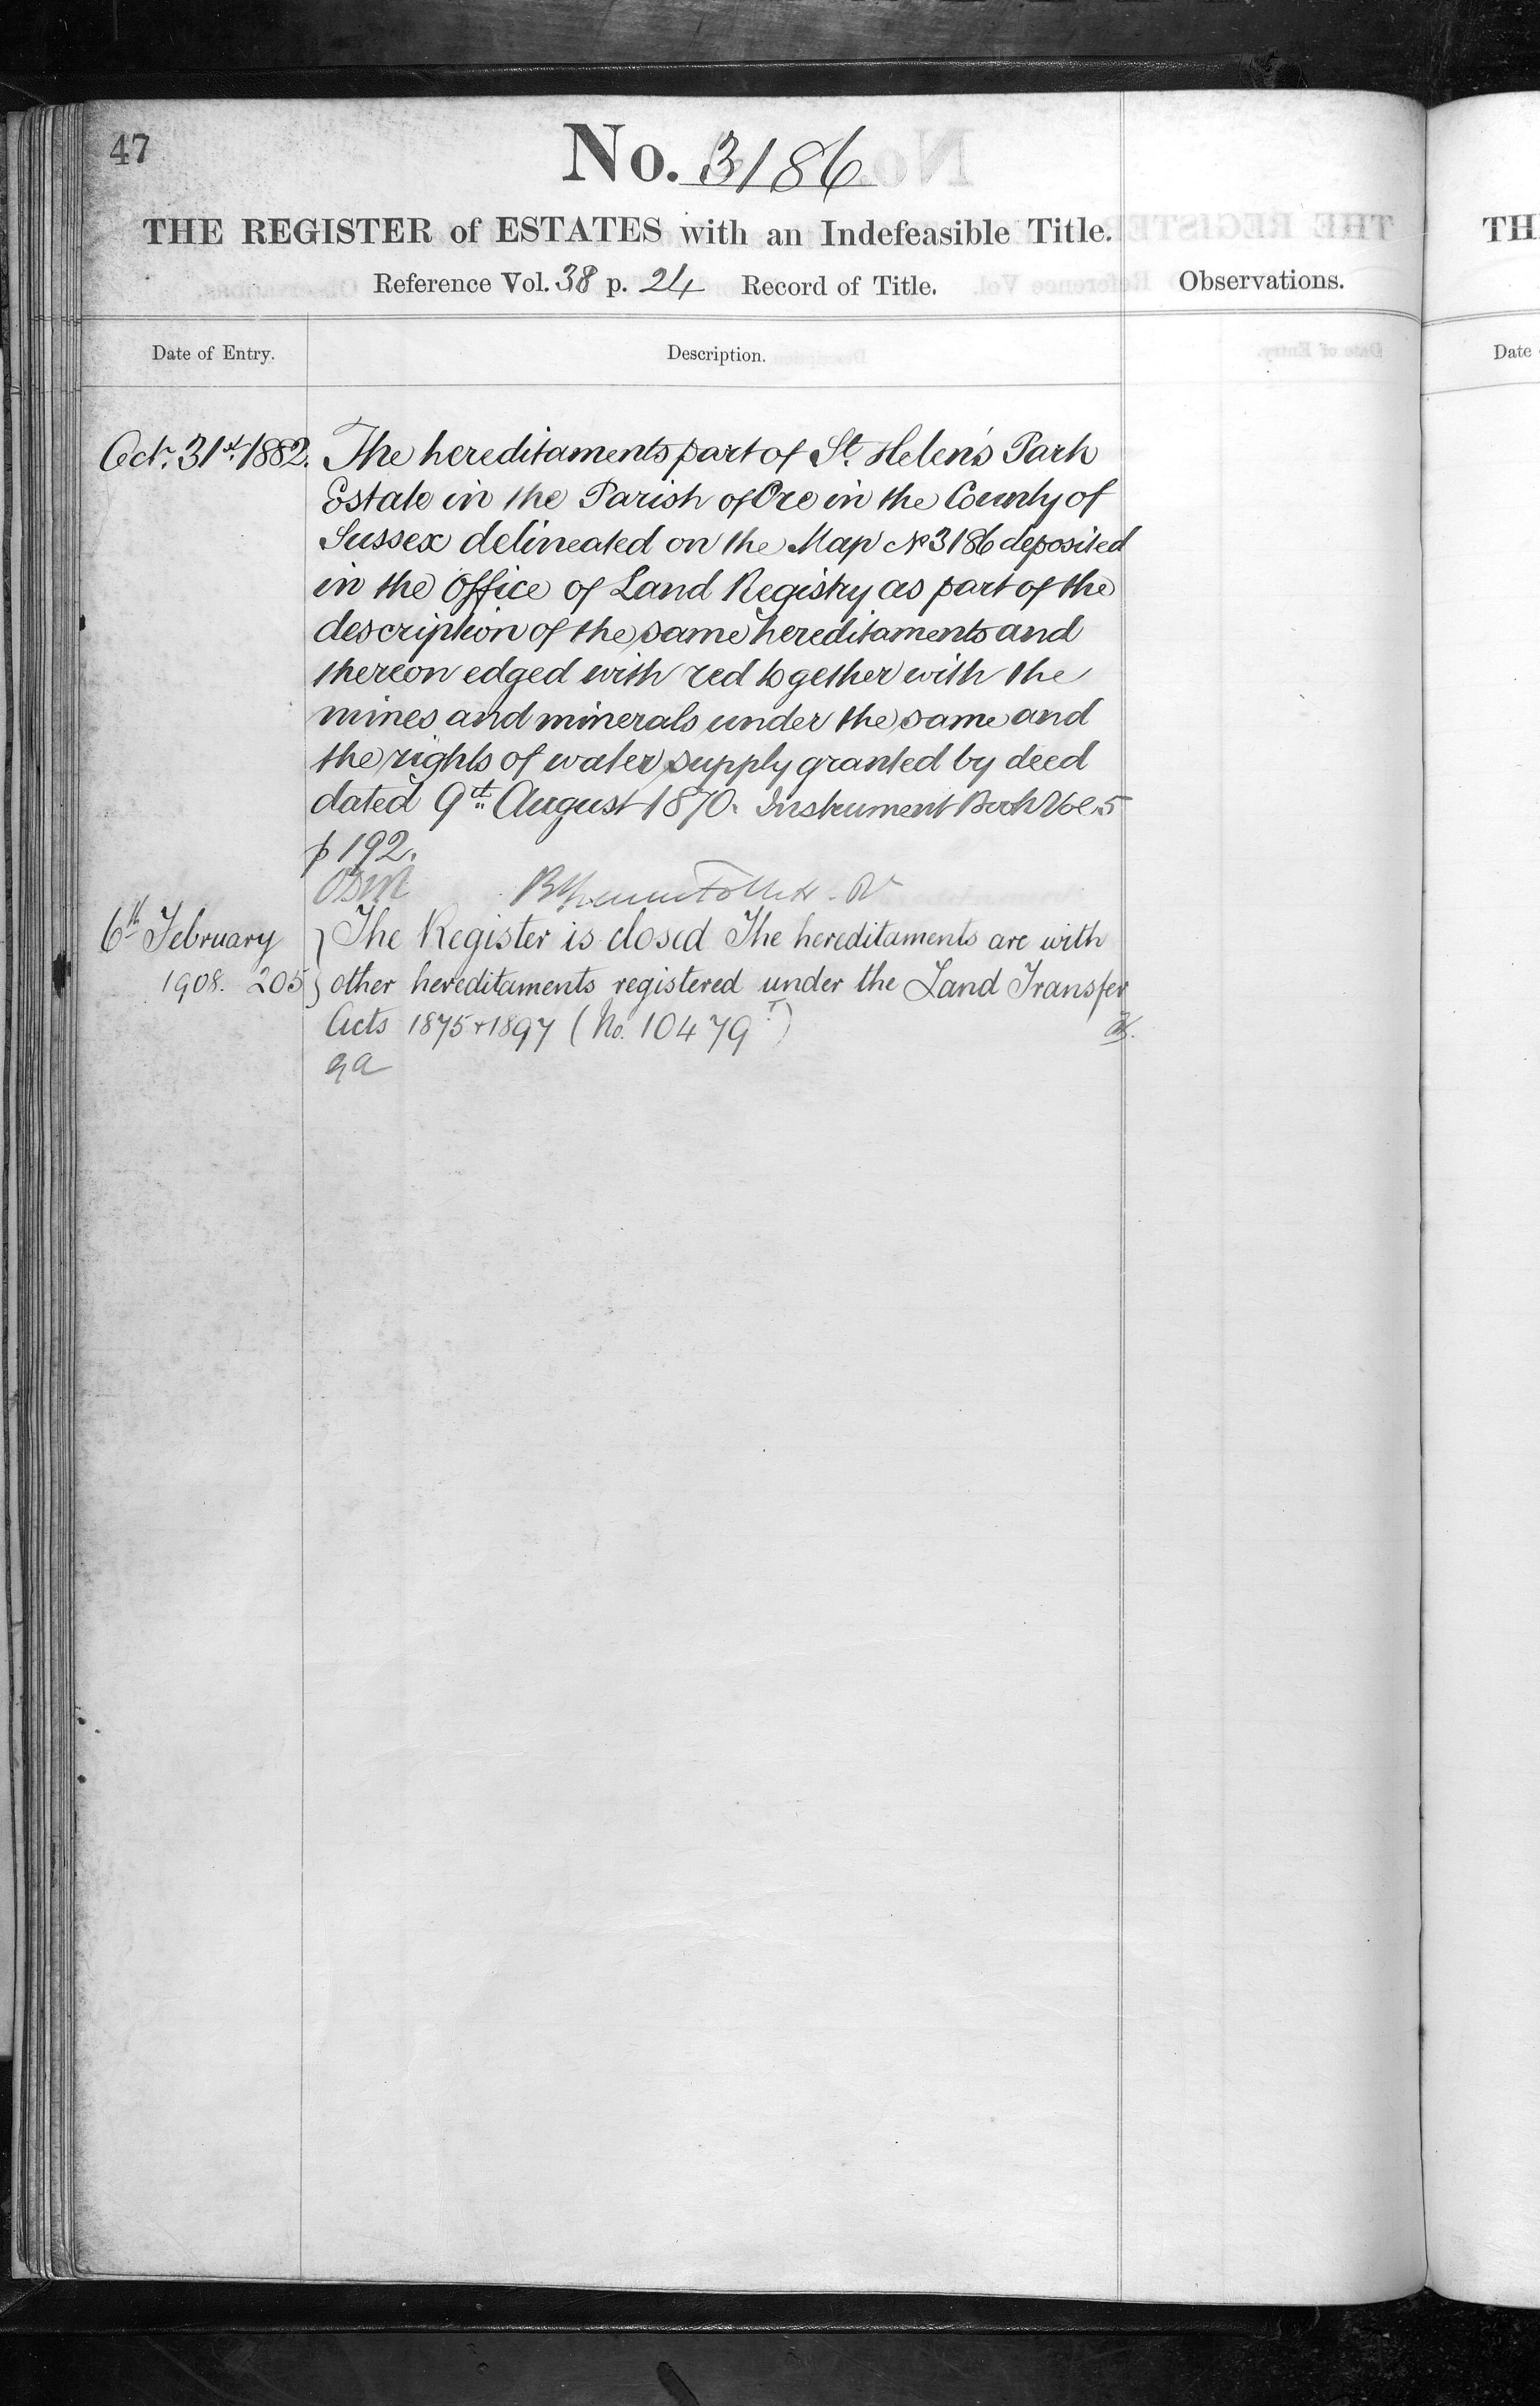 47
No. 3186
THE REGISTER of ESTATES with an Indefeasible Title.
Reference Vol. 38 p. 24 Record of Title.
Observations.
Date of Entry.
Description.
Oct. 31st 1882. The hereditaments part of St. Helen's Park
Estate in the Parish of Ore in the County of
Sussex delineated on the Map No 3186 deposited
in the Office of Land Registry as part of the
description of the same hereditaments and
thereon edged with red together with the
mines and minerals under the same and
the rights of water supply granted by deed
dated 9th August 1870. Instrument Book Vol. 5
p 192.
6th February } The Register is closed The hereditaments are with
1908. 205 } other hereditaments registered under the Land Transfer
Acts 1875 + 1897 (No. 10479)
TH
Date